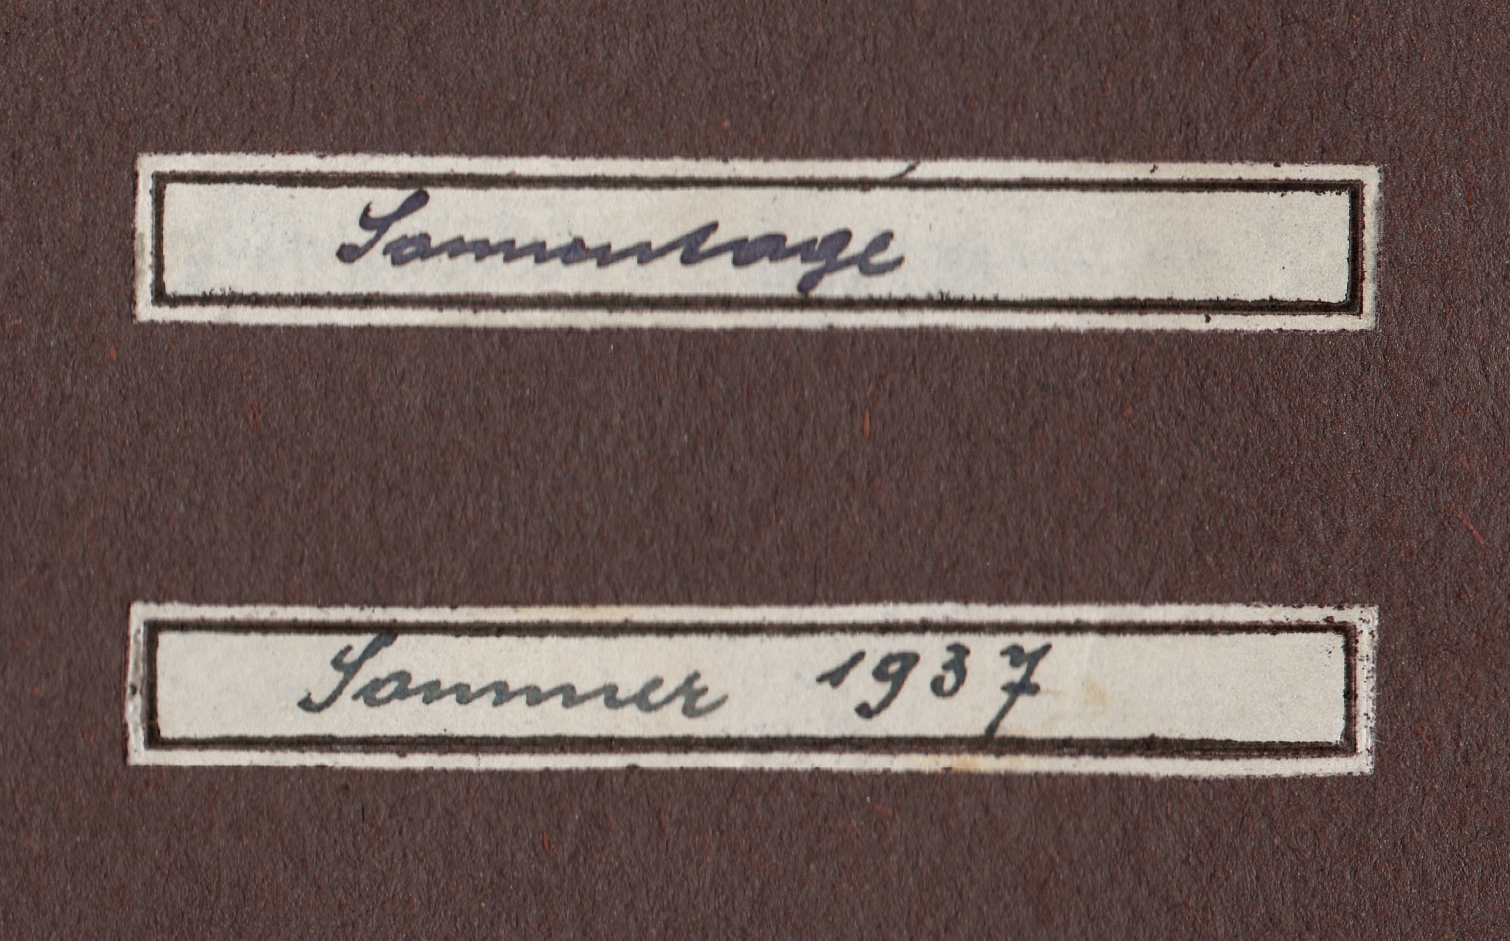 Sonnentage
Sommer 1937